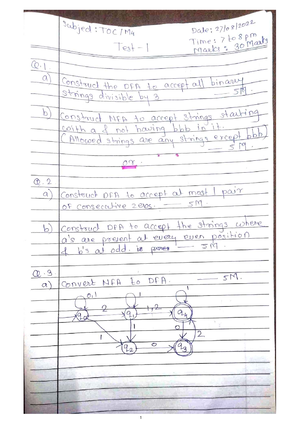 Subject: TOC/M4
Date: 27/02/2022
Test-1
Time: 7 to 8 pm
Marks: 30 Marks
Q.1
a) Construct the DFA to accept all binary
strings divisible by 3 — 5M.
b) Construct NFA to accept strings starting
with a & not having bbb to it.
[Allowed strings are any strings except bbb]
— 5M.
or
Q.2
a) Construct DFA to accept at most 1 pair
of consecutive zeros. — 5M.
b) Construct DFA to accept the strings where
a's are present at every even position
& b's at odd. — 5M.
Q.3
a) Convert NFA to DFA. — 5M.
0,1
1
1
2
1,2
1
2
2
1
0
q2
q3
1